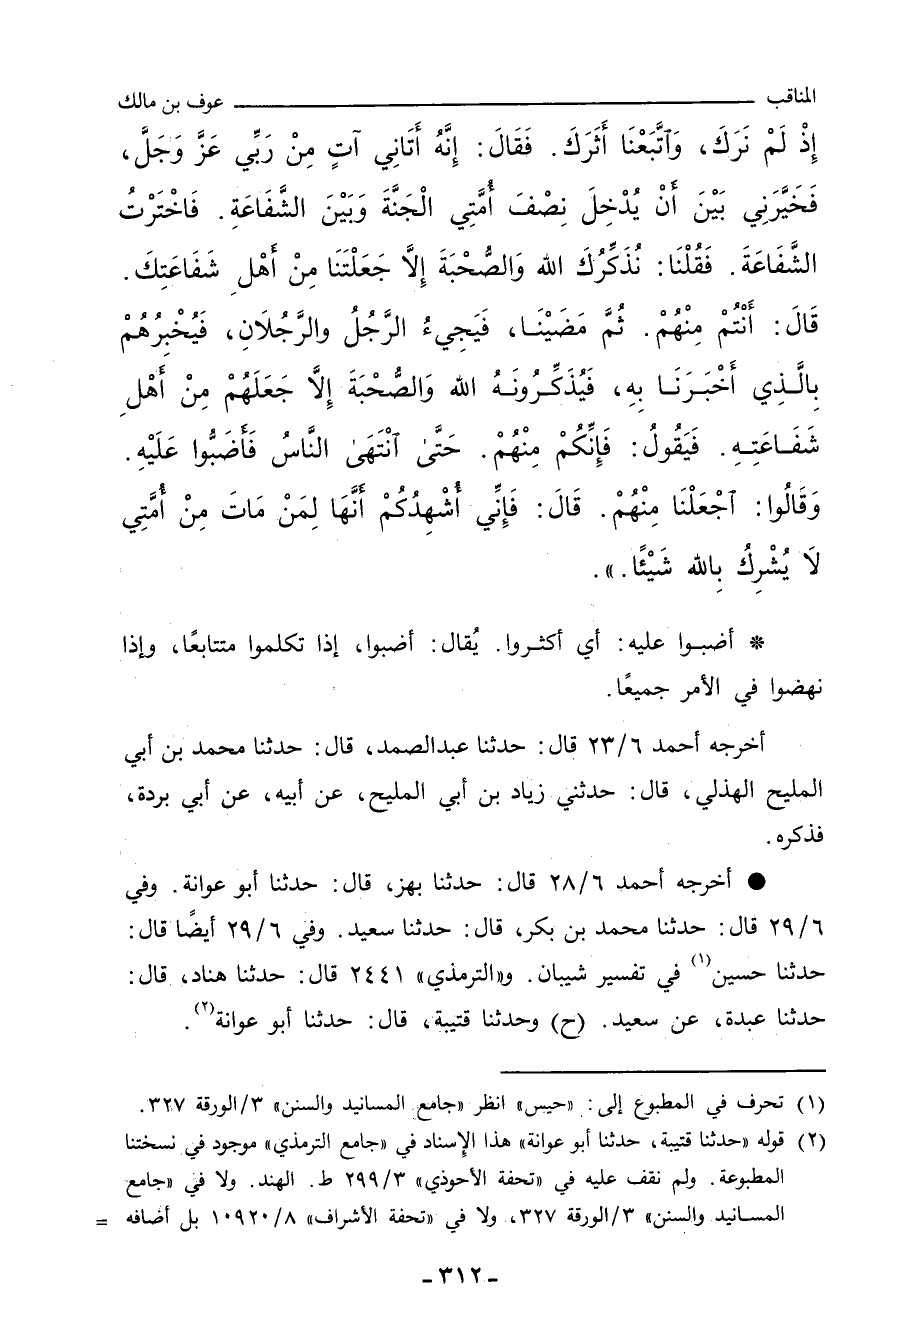 المناقب ــــــــــــــــــــــــــــــــ عوف بن مالك
إِذْ لَمْ نَرَكَ، وَٱتَّبَعْنَا أَثَرَكَ. فَقَالَ: إِنَّهُ أَتَانِي آتٍ مِنْ رَبِّي عَزَّ وَجَلَّ،
فَخَيَّرَنِي بَيْنَ أَنْ يُدْخِلَ نِصْفَ أُمَّتِي الْجَنَّةَ وَبَيْنَ الشَّفَاعَةِ. فَاخْتَرْتُ
الشَّفَاعَةَ. فَقُلْنَا: نُذَكِّرُكَ الله وَالصُّحْبَةَ إِلاَّ جَعَلْتَنَا مِنْ أَهْلِ شَفَاعَتِكَ.
قَالَ: أَنْتُمْ مِنْهُمْ. ثُمَّ مَضَيْنَا، فَيَجِيءُ الرَّجُلُ والرَّجُلَانِ، فَيُخْبِرُهُمْ
بِالَّذِي أَخْبَرَنَا بِهِ، فَيُذَكِّرُونَهُ الله وَالصُّحْبَةَ إِلاَّ جَعَلَهُمْ مِنْ أَهْلِ
شَفَاعَتِهِ. فَيَقُولُ: فَإِنَّكُمْ مِنْهُمْ. حَتَّىٰ ٱنْتَهَىٰ النَّاسُ فَأَضَبُّوا عَلَيْهِ.
وَقَالُوا: ٱجْعَلْنَا مِنْهُمْ. قَالَ: فَإِنِّي أُشْهِدُكُمْ أَنَّهَا لِمَنْ مَاتَ مِنْ أُمَّتِي
لاَ يُشْرِكُ بِالله شَيْئًا.».
* أضبوا عليه: أي أكثروا. يُقال: أضبوا، إذا تكلموا متتابعًا، وإذا
نهضوا في الأمر جميعًا.
أخرجه أحمد ٢٣/٦ قال: حدثنا عبدالصمد، قال: حدثنا محمد بن أبي
المليح الهذلي، قال: حدثني زياد بن أبي المليح، عن أبيه، عن أبي بردة،
فذكره.
● أخرجه أحمد ٢٨/٦ قال: حدثنا بهز، قال: حدثنا أبو عوانة. وفي
٢٩/٦ قال: حدثنا محمد بن بكر، قال: حدثنا سعيد. وفي ٢٩/٦ أيضًا قال:
حدثنا حسين(١) في تفسير شيبان. و«الترمذي» ٢٤٤١ قال: حدثنا هناد، قال:
حدثنا عبدة، عن سعيد. (ح) وحدثنا قتيبة، قال: حدثنا أبو عوانة(٢).
(١) تحرف في المطبوع إلى: «حيس» انظر «جامع المسانيد والسنن» ٣/الورقة ٣٢٧.
(٢) قوله «حدثنا قتيبة، حدثنا أبو عوانة» هذا الإسناد في «جامع الترمذي» موجود في نسختنا
المطبوعة. ولم نقف عليه في «تحفة الأحوذي» ٢٩٩/٣ ط. الهند. ولا في «جامع
المسانيد والسنن» ٣/الورقة ٣٢٧، ولا في «تحفة الأشراف» ١٠٩٢٠/٨ بل أضافه =
- ٣١٢ -